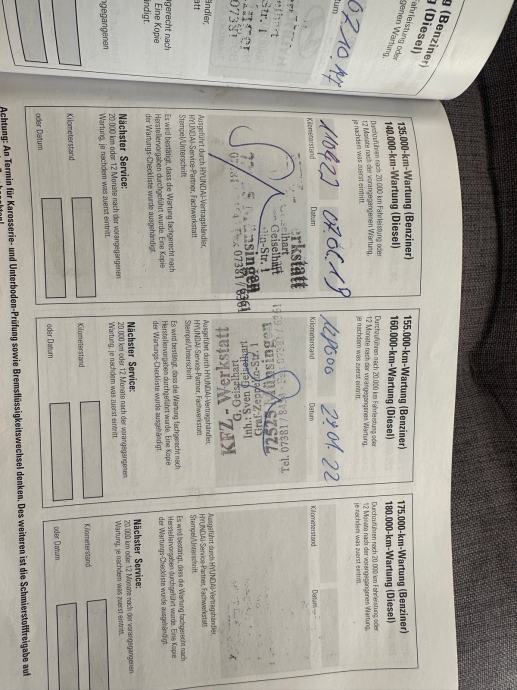 g (Benziner)
(Diesel)
ahrleistung oder
genen Wartung,
händler,
att
gerecht nach
Eine Kopie
ändigt
angegangenen
135.000-km-Wartung (Benziner)
140.000-km-Wartung (Diesel)
Durchzuführen nach 20.000 km Fahrleistung oder
12 Monate nach der vorangegangenen Wartung,
je nachdem was zuerst eintritt.
Kilometerstand
Datum
07.01.19
erkstatt
Geiselhart
Ausgeführt durch HYUNDAI-Vertragshändler,
HYUNDAI-Service-Partner, Fachwerkstatt
Stempel/Unterschrift
Es wird bestätigt, dass die Wartung fachgerecht nach
Herstellervorgaben durchgeführt wurde. Eine Kopie
der Wartungs-Checkliste wurde ausgehändigt.
Nächster Service:
20.000 km oder 12 Monate nach der vorangegangenen
Wartung, je nachdem was zuerst eintritt.
Kilometerstand
oder Datum
155.000-km-Wartung (Benziner)
160.000-km-Wartung (Diesel)
Durchzuführen nach 20.000 km Fahrleistung oder
12 Monate nach der vorangegangenen Wartung,
je nachdem was zuerst eintritt.
Kilometerstand
Datum
24.01.22
KFZ - Werkstatt
G. Geiselhart
Inh. Sven Geiselhart
Graf-Zeppelin-Str. 1
72525 Münsingen
Ausgeführt durch HYUNDAI-Vertragshändler,
HYUNDAI-Service-Partner, Fachwerkstatt
Stempel/Unterschrift
Es wird bestätigt, dass die Wartung fachgerecht nach
Herstellervorgaben durchgeführt wurde. Eine Kopie
der Wartungs-Checkliste wurde ausgehändigt.
Nächster Service:
20.000 km oder 12 Monate nach der vorangegangenen
Wartung, je nachdem was zuerst eintritt.
Kilometerstand
oder Datum
175.000-km-Wartung (Benziner)
180.000-km-Wartung (Diesel)
Durchzuführen nach 20.000 km Fahrleistung oder
12 Monate nach der vorangegangenen Wartung,
je nachdem was zuerst eintritt.
Kilometerstand
Datum
Ausgeführt durch HYUNDAI-Vertragshändler,
HYUNDAI-Service-Partner, Fachwerkstatt
Stempel/Unterschrift
Es wird bestätigt, dass die Wartung fachgerecht nach
Herstellervorgaben durchgeführt wurde. Eine Kopie
der Wartungs-Checkliste wurde ausgehändigt.
Nächster Service:
20.000 km oder 12 Monate nach der vorangegangenen
Wartung, je nachdem was zuerst eintritt.
Kilometerstand
oder Datum
Achtung: An Termin für Karosserie- und Unterboden-Prüfung sowie Bremsflüssigkeitswechsel denken. Des weiteren ist die Schmierstofffreigabe auf